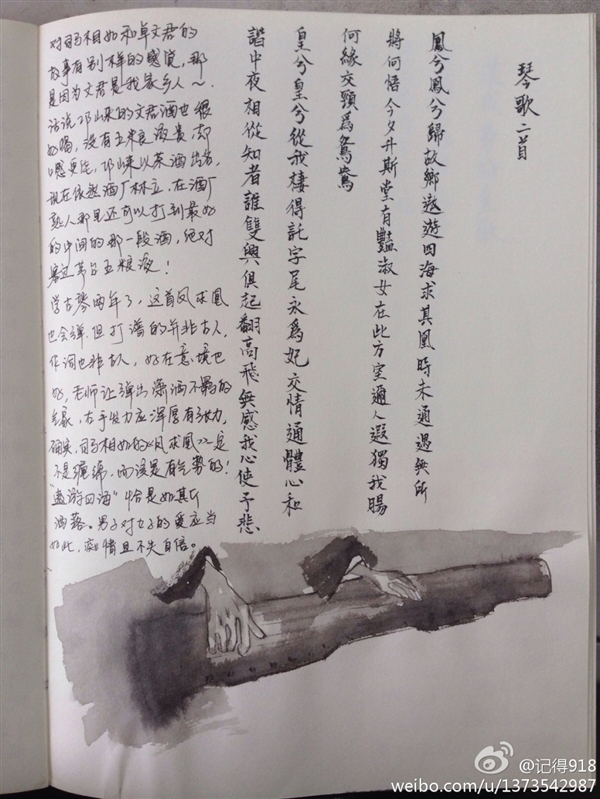 琴歌二首
鳳兮鳳兮歸故鄉遨遊四海求其凰時未通遇無所
將何悟今夕升斯堂有豔淑女在此方室邇人遐獨我腸
何緣交頸為鴛鴦
皇兮皇兮從我棲得託字尾永為妃交情通體心和
諧中夜相從知者誰雙興俱起翻高飛無感我心使予悲
对司马相如和卓文君的
故事有别样的感觉，那
是因为文君是我家乡人～.
话说邛崃来的文君酒也很
好喝，没有五粮液贵，却
口感更佳，邛崃以菜酒出名，
现在依然酒厂林立，在酒厂
熟人那里还可以打到最好
的中间的那一段酒，绝对
赛过茅台五粮液！
学古琴两年了，这首凤求凰
也会弹.但打谱的并非古人，
作词也非古人，好在意境也
好，老师让弹出潇洒不羁的
气象，右手出力应浑厚有张力，
确实，司马相如的《凤求凰》是
不是缠绵，而该是有气势的！
"遨游四海"恰是如其
洒落。男子对女子的爱应当
如此，痴情且不失自信。
@记得918
weibo.com/u/1373542987